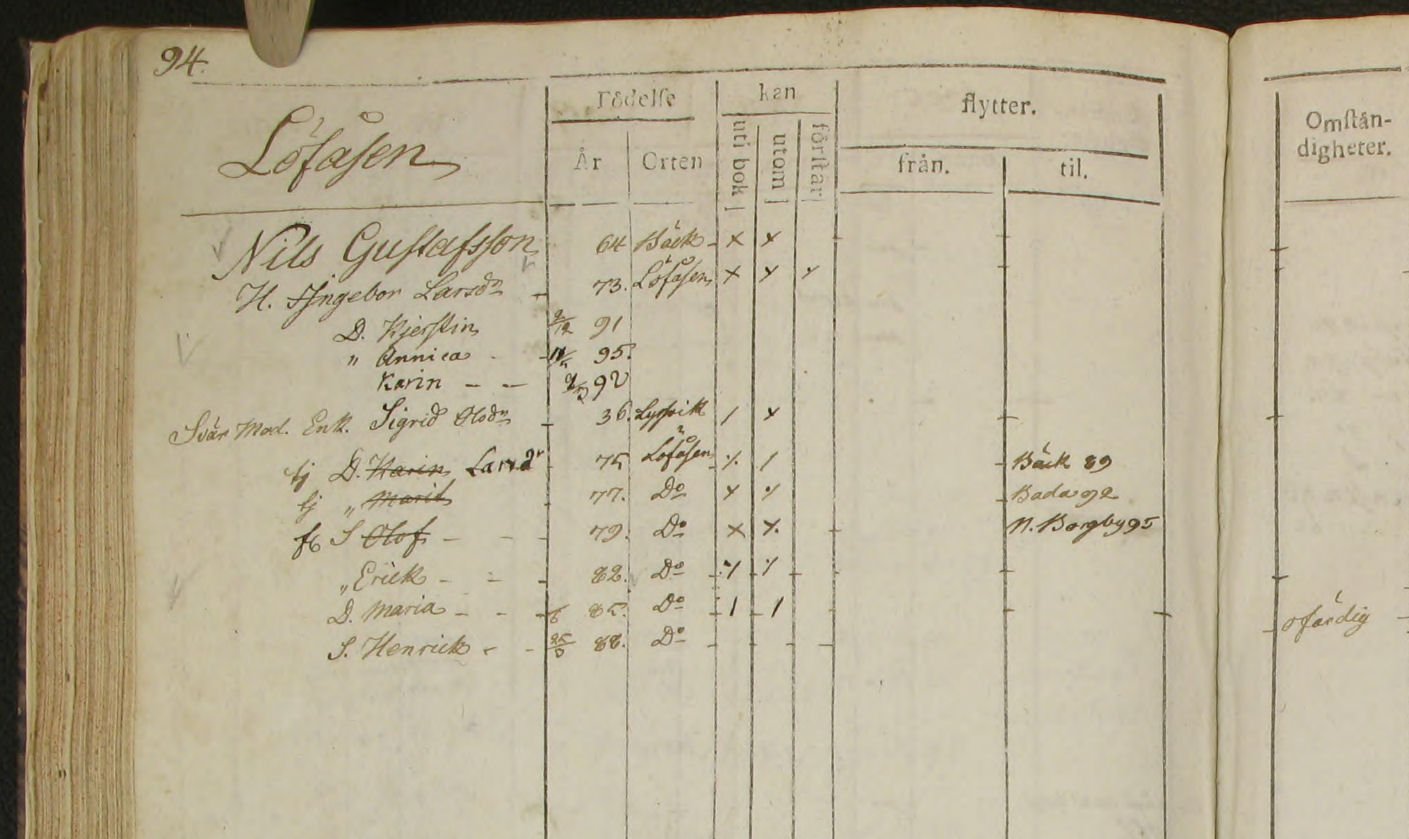 94.
Löfåsen
Födelse
År
Orten
kan
uti bok
utom
förstår
flytter.
från.
til.
Omstån-
digheter.
Nils Gustafsson 64 Bäck x x
H. Ingebor Larsdr 73. Löfåsen x x x
D. Kjerstin 2/12 91
" Annica 95.
Karin 92
Svär Mod. Enk. Sigrid Olsdr 36. Lysvik / x
tj D. Karin Larsdr 75 Löfåsen ⁒ / Bäck 89
tj " Marit 77. Do x ⁒ Bada 92
S Olof 79. Do x ⁒ N. Borgby 95
" Erick 82. Do ⁒ ⁒
D. Maria 85. Do / / ofärdig
S. Henrick 88. Do